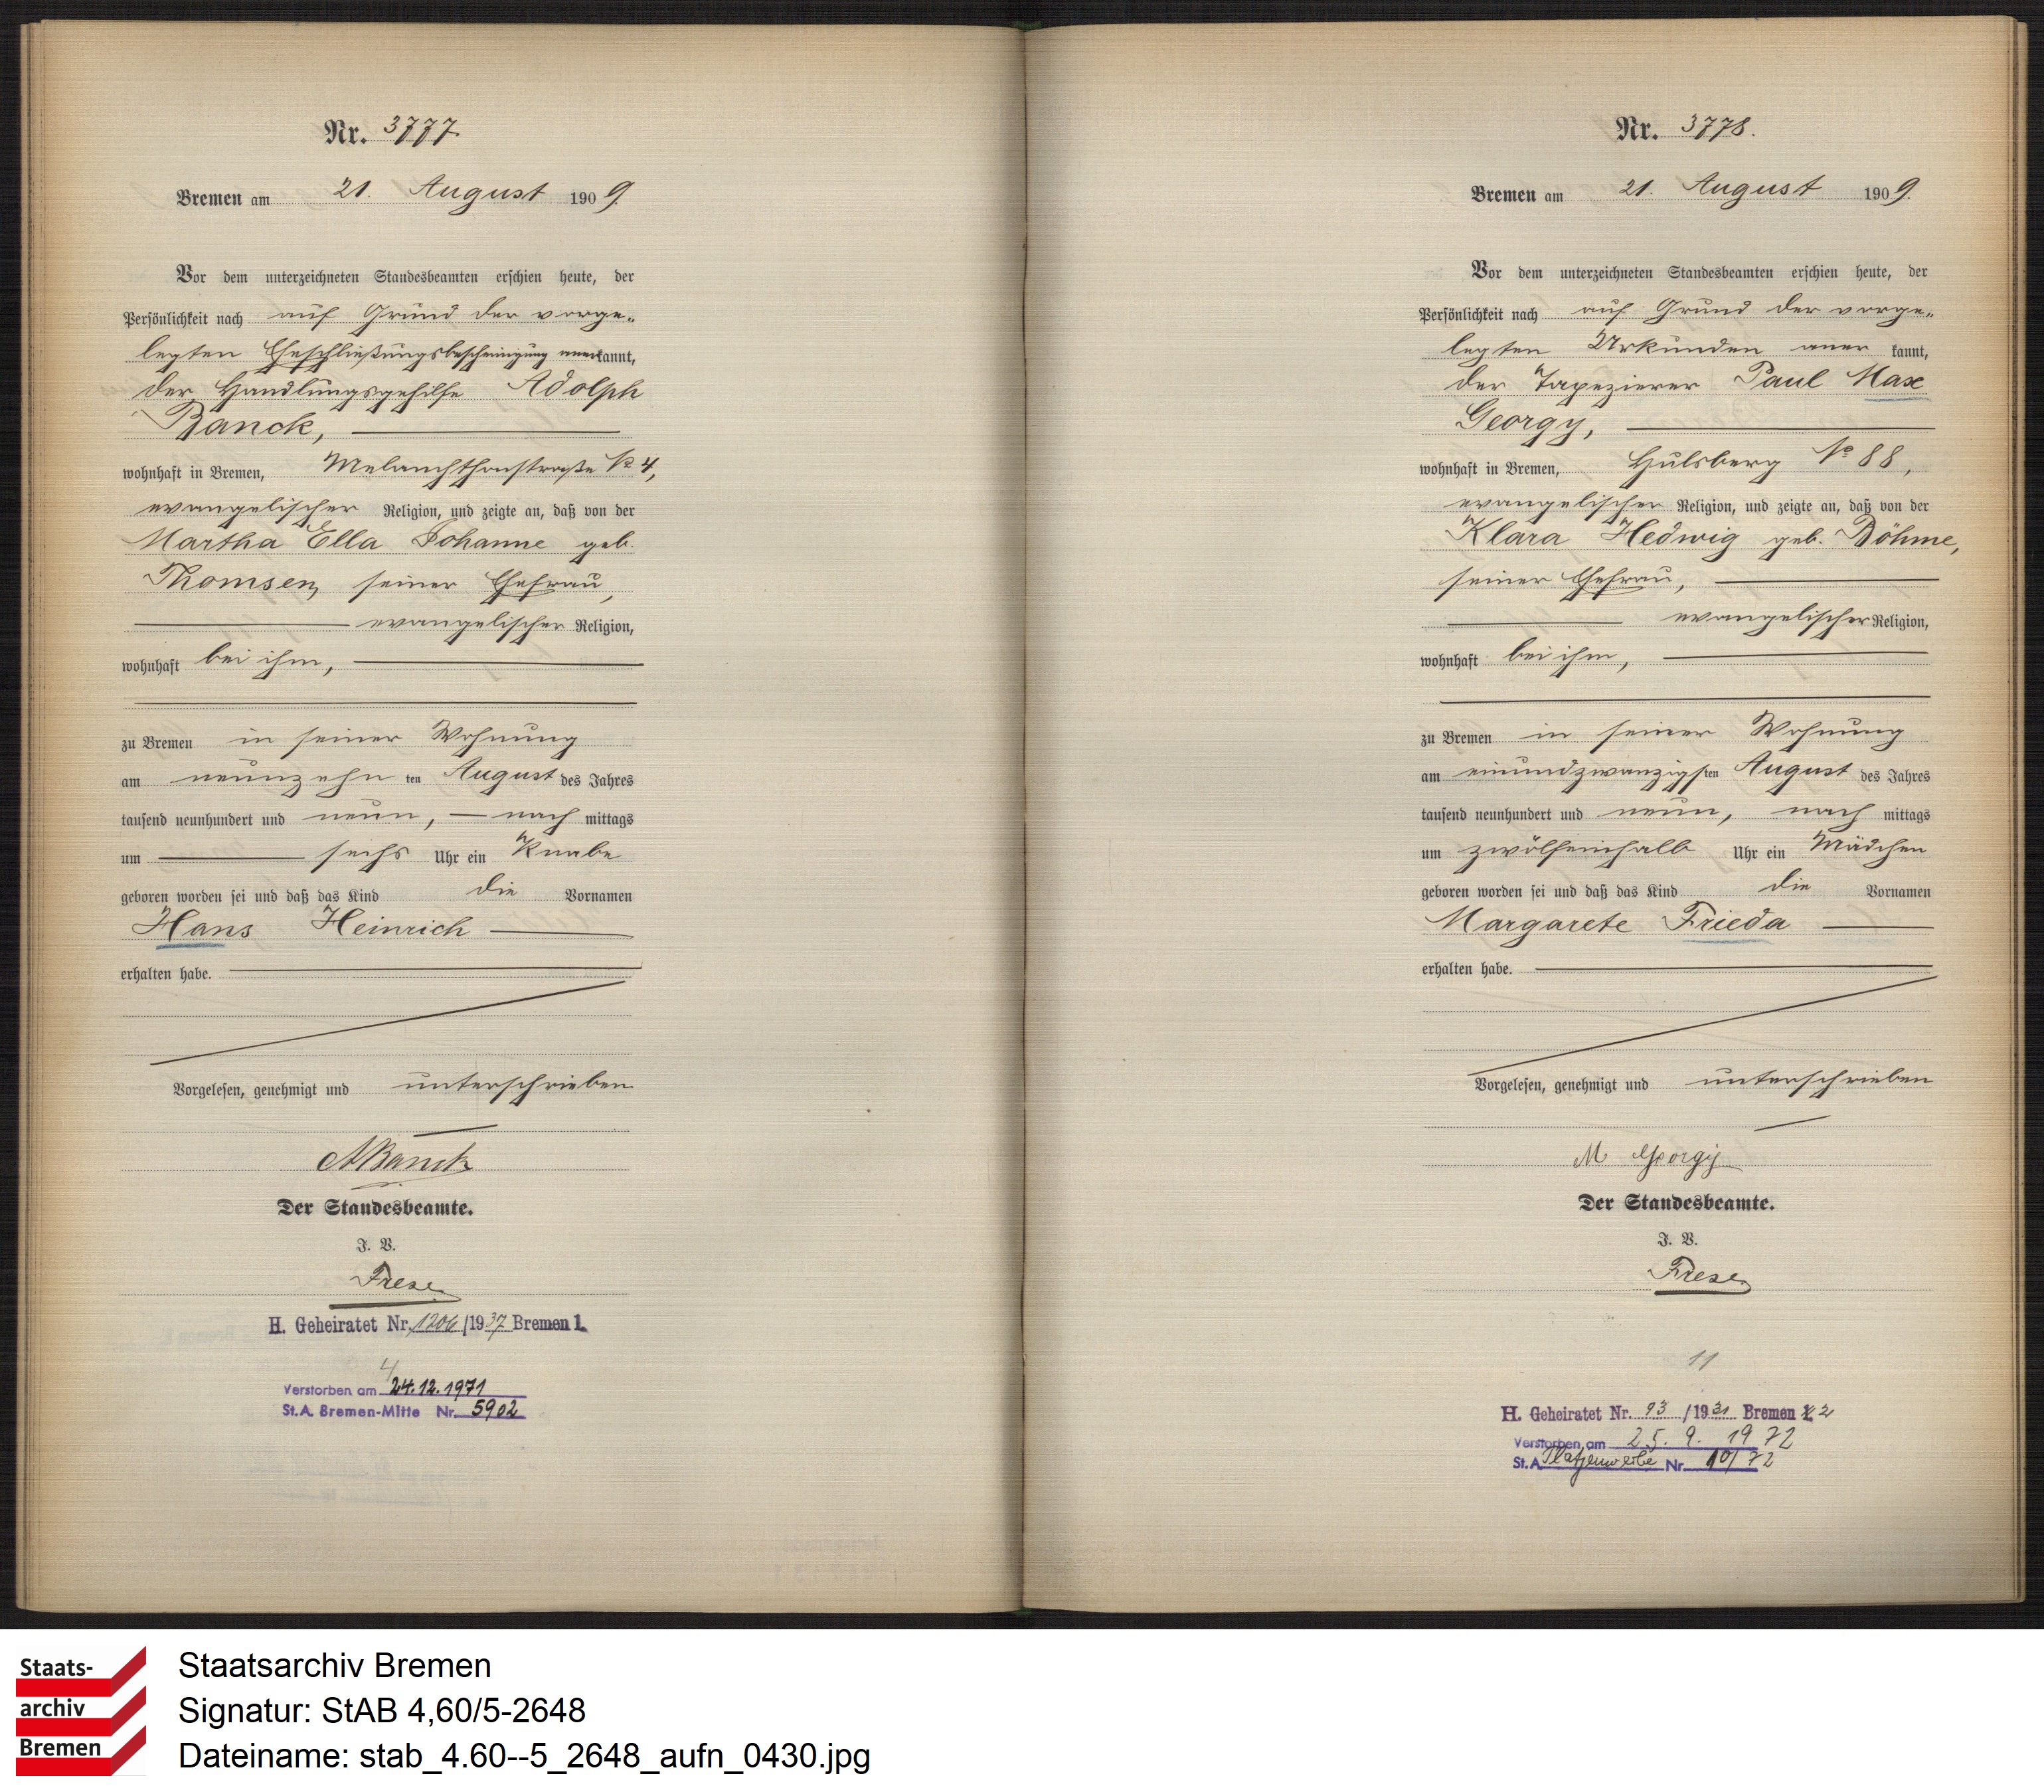 Nr. 3777.
Bremen am 21. August 1909.
Vor dem unterzeichneten Standesbeamten erschien heute, der
Persönlichkeit nach auf Grund der vorge-
legten Eheschließungsbescheinigung anerkannt,
der Handlungsgehilfe Adolph
Banck,
wohnhaft in Bremen, Melanchthonstraße No 4,
evangelischer Religion, und zeigte an, daß von der
Martha Ella Johanne geb.
Thomsen, seiner Ehefrau,
evangelischer Religion,
wohnhaft bei ihm,
zu Bremen in seiner Wohnung
am neunzehn ten August des Jahres
tausend neunhundert und neun, nach mittags
um sechs Uhr ein Knabe
geboren worden sei und daß das Kind die Vornamen
Hans Heinrich
erhalten habe.
Vorgelesen, genehmigt und unterschrieben
ABanck
Der Standesbeamte.
J. V.
Frese
H. Geheiratet Nr. 1206/1937 Bremen 1.
4
Verstorben am 24.12.1971
St.A. Bremen-Mitte Nr. 5902
Nr. 3778.
Bremen am 21. August 1909.
Vor dem unterzeichneten Standesbeamten erschien heute, der
Persönlichkeit nach auf Grund der vorge-
legten Urkunden aner kannt,
der Tapezierer Paul Max
Georgy,
wohnhaft in Bremen, Hulsberg No 88,
evangelischer Religion, und zeigte an, daß von der
Klara Hedwig geb. Böhme,
seiner Ehefrau,
evangelischer Religion,
wohnhaft bei ihm,
zu Bremen in seiner Wohnung
am einundzwanzigsten August des Jahres
tausend neunhundert und neun, nach mittags
um zwölfeinhalb Uhr ein Mädchen
geboren worden sei und daß das Kind die Vornamen
Margarete Frieda
erhalten habe.
Vorgelesen, genehmigt und unterschrieben
M Georgy
Der Standesbeamte.
J. V.
Frese
11
H. Geheiratet Nr. 93/1931 Bremen 2
Verstorben am 25. 9. 1972
St.A. Platjenwerbe Nr. 10/72
Staats-
archiv
Bremen
Staatsarchiv Bremen
Signatur: StAB 4,60/5-2648
Dateiname: stab_4.60--5_2648_aufn_0430.jpg